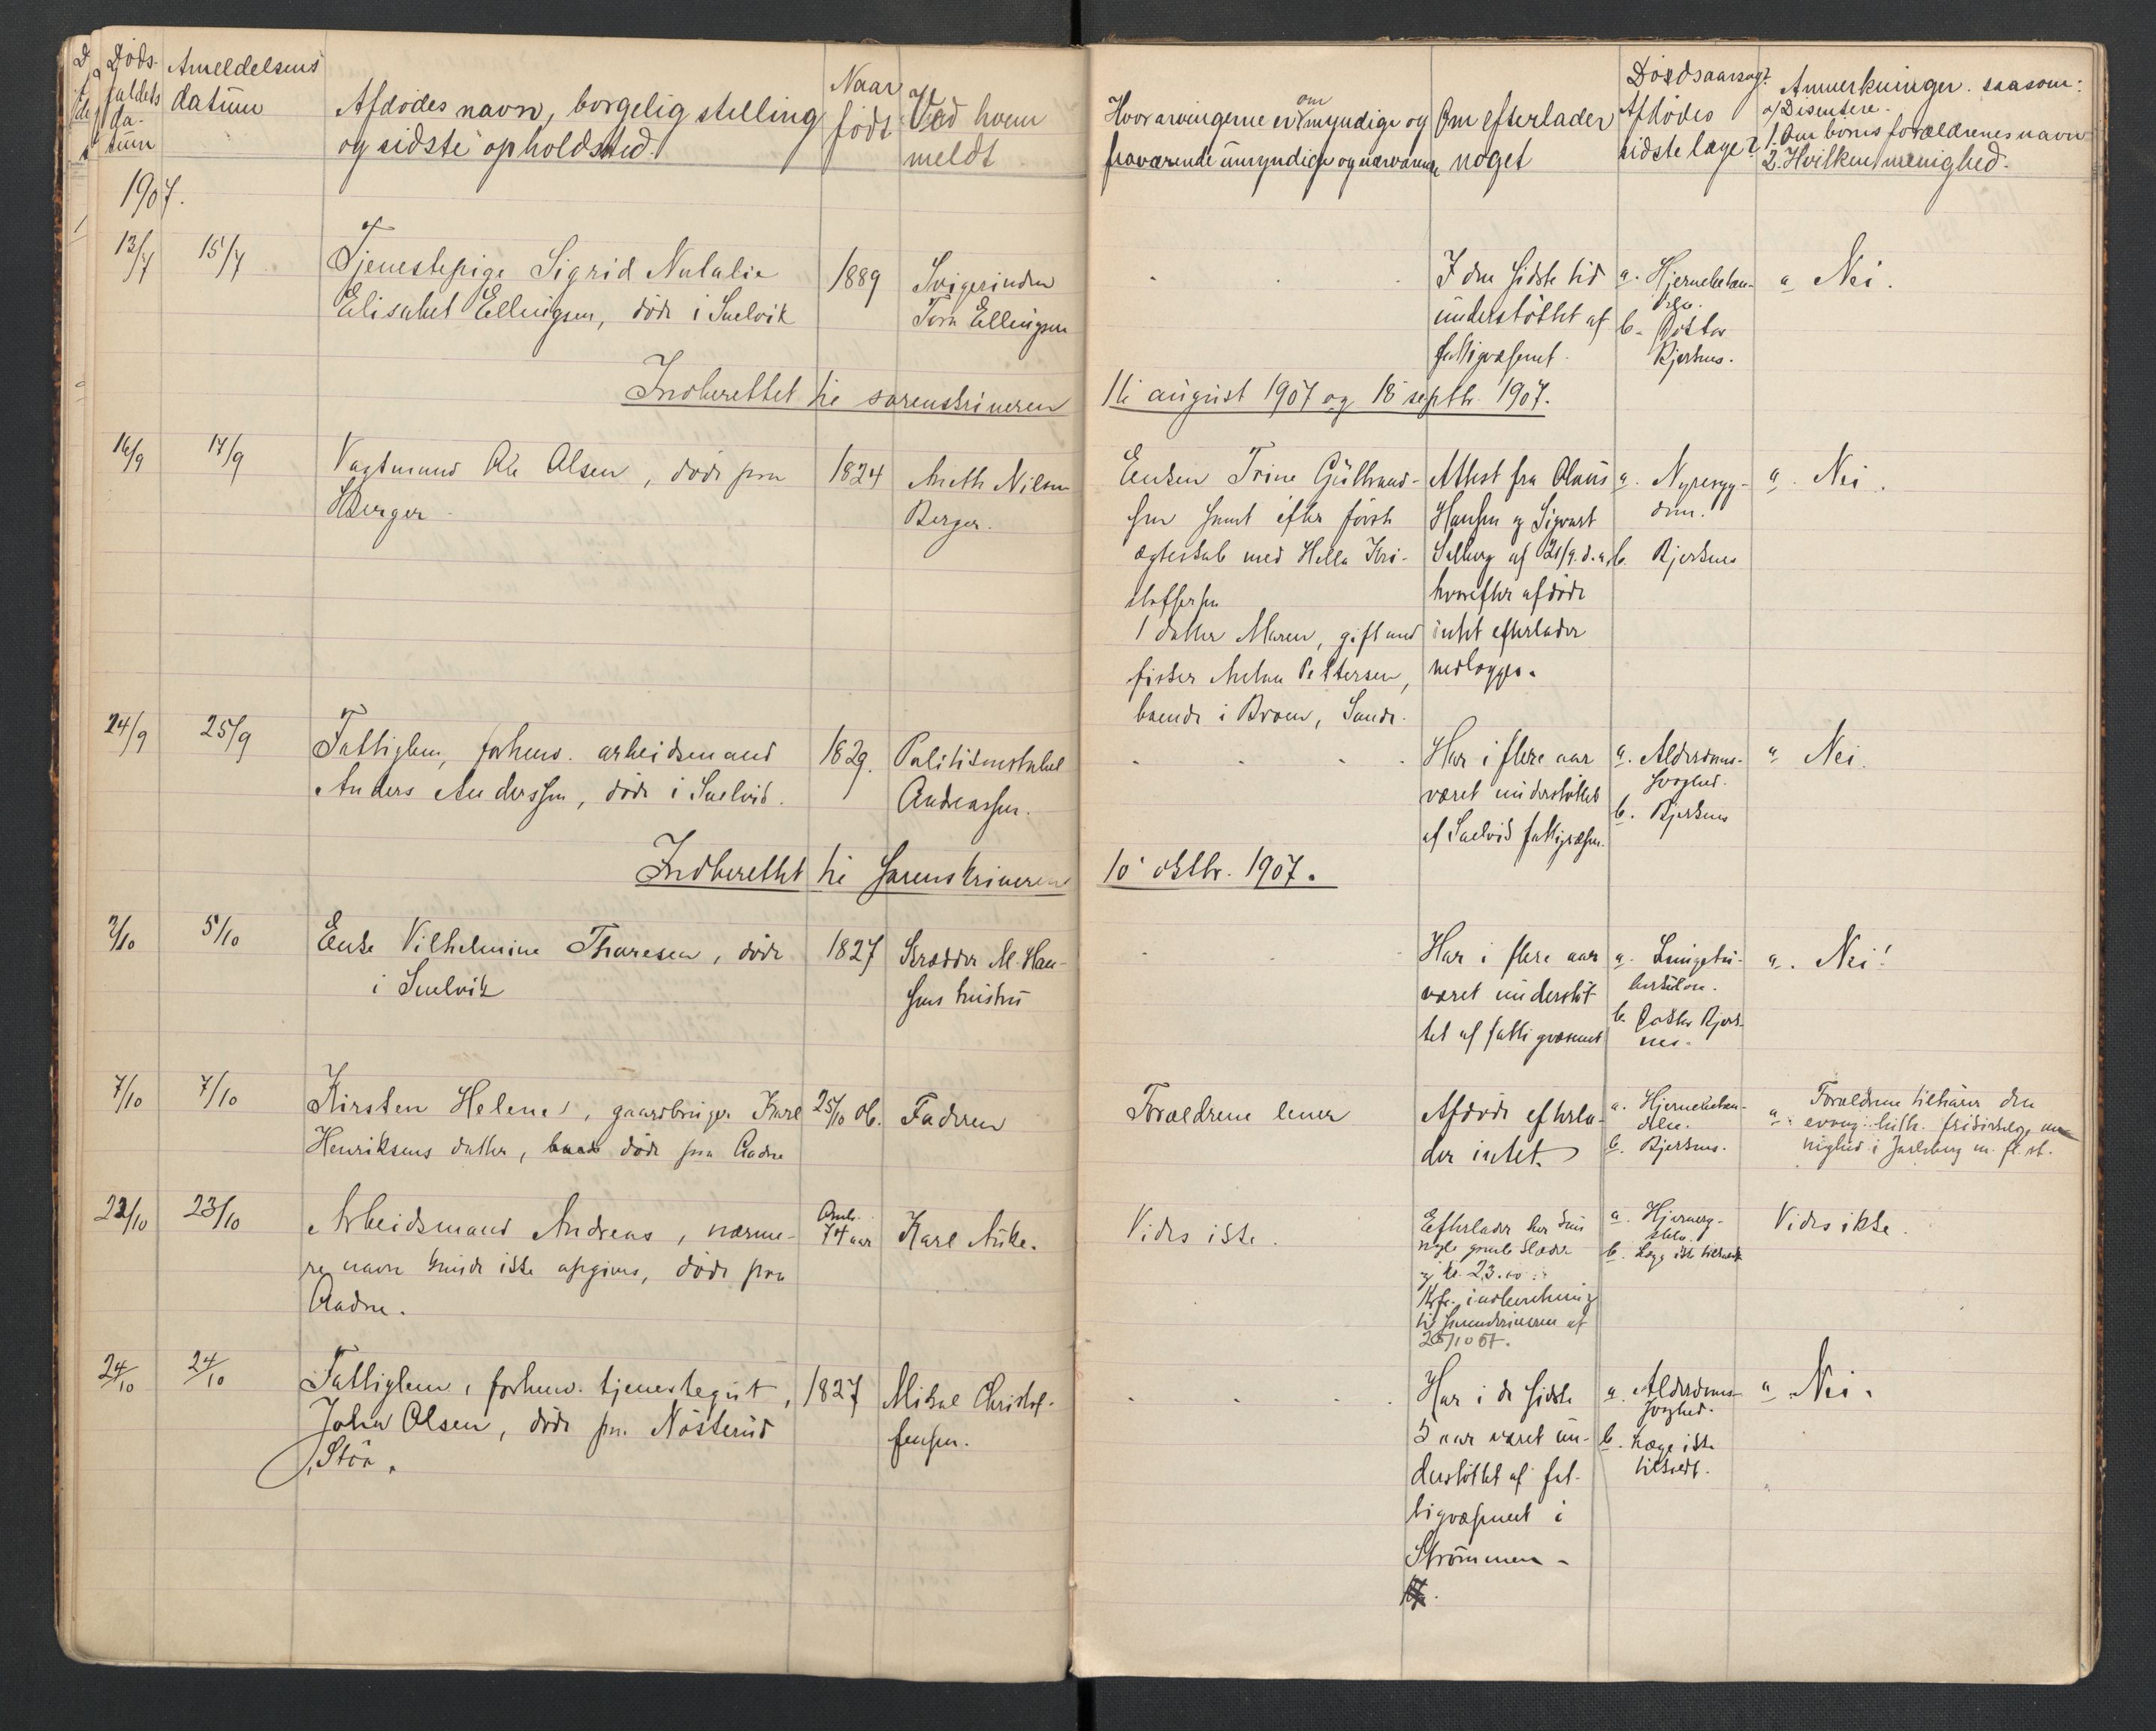 Döds-
faldets
da-
tum
Anmeldelsens
datum
Afdödes navn, borgelig stilling
og sidste opholdsted.
Naar
födt
Ved hvem
meldt
Hvor arvingerne er om myndige og
fraværende umyndige og nærværende
Om efterlader
noget
Dödsaarsag?
Afdödes
sidste læge?
Anmerkninger saasom:
a/ Disentere.
1. Om börns forældrenes navn
2. Hvilken menighed.
1907.
13/7
15/7
Tjenestepige Sigrid Natalie
Elisabet Ellingsen, döde i Svelvik
1889
Svigerinden
Tora Ellingsen
I den sidste tid
understöttet af
fattigvæsenet.
a. Hjernebetæn-
delse.
b. Doktor
Bjerknes.
a Nei.
Indberettet til sorenskriveren
16 august 1907 og 18 septbr. 1907.
16/9
17/9
Vagtmand Ole Olsen, döde paa
Berger.
1824
Aneth Nilsen
Berger.
Enken Trine Gulbrand-
sen samt efter förste
ægteskab med Hella Kri-
stoffersen
1 datter Maren, gift med
fisker Anton Pettersen,
boende i Broen, Sande.
Attest fra Olaus
Hansen og Sigvart
Solberg af 21/9. d.a.
hvorefter afdöde
intet efterlader
vedlægges.
a. Nyresyg-
dom.
b. Bjerknes
a. Nei.
24/9
25/9
Fattiglem, forhenv. arbeidsmand
Anders Anderssen, döde i Svelvik.
1829.
Politikonstabel
Andreassen.
Har i flere aar
været understöttet
af Svelvik fattigvæsen.
a. Alderdoms-
svaghed.
b. Bjerknes
a Nei.
Indberettet til sorenskriveren
10 oktbr. 1907.
2/10
5/10
Enke Vilhelmine Thoresen, döde
i Svelvik
1827
Skrædder M. Han-
sens hustru
Har i flere aar
været understöt-
tet af fattigvæsenet
a. Lungetu-
berkulose.
b. Doktor Bjerk-
nes.
a. Nei!
7/10
7/10
Kirsten Helene, gaardbruger Karl
Henriksens datter, döde paa Aadne
25/10 06.
Faderen
Forældrene lever
Afdöde efterla-
der intet.
a. Hjernebetæn-
delse.
b. Bjerknes.
a. Forældrene tilhörer den
evang. luth. frikirkelige me-
nighed i Jarlsberg m. fl. st.
22/10
23/10
Arbeidsmand Andreas, nærme-
re navn kunde ikke opgives, döde paa
Aadne.
Omtr.
74 aar
Karl Auke.
Vides ikke.
Efterlader kun
nogle gamle klæder
og kr. 23.00
Kfr. indberetning
til sorenskriveren af
25/10 07.
a. Hjerneryg-
b. Læge ikke tilkaldt
Vides ikke.
24/10
24/10
Fattiglem, forhenv. tjenestegut,
Johan Olsen, döde paa Nösterud
Stöa.
1827
Mikal Christof-
fersen.
Har i de sidste
5 aar været un-
derstöttet af fat-
tigvæsenet i
Strömmen.
a. Alderdoms-
svaghed.
b. Læge ikke
tilkaldt.
a Nei.